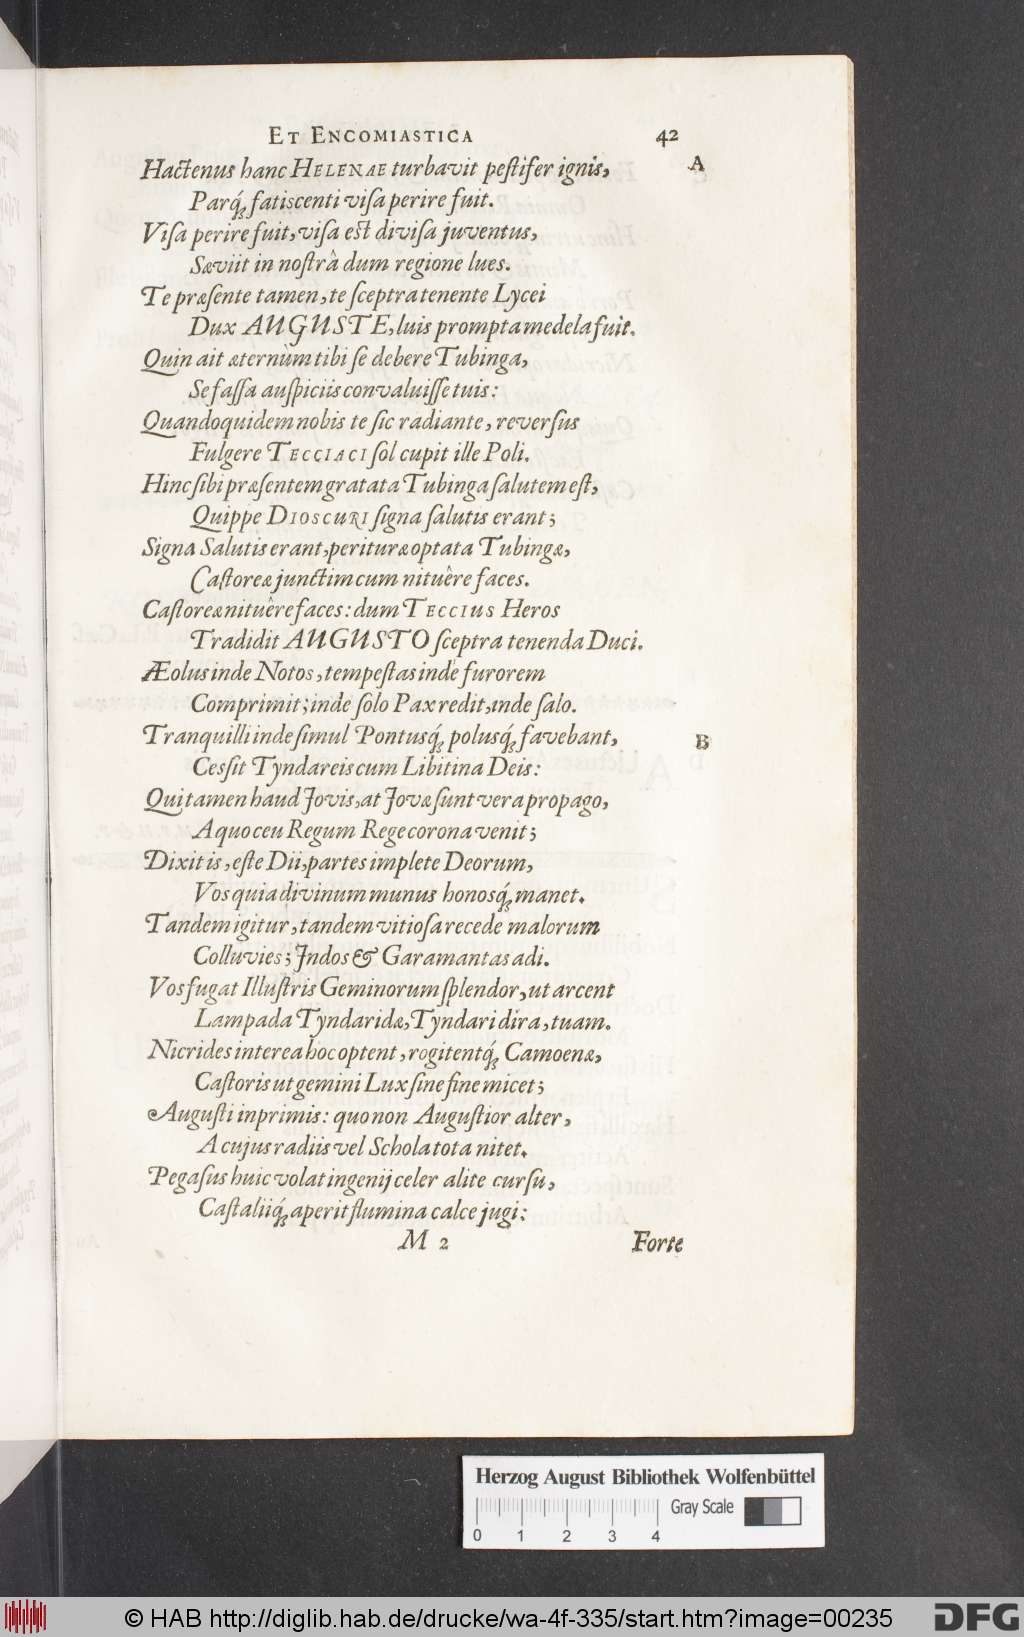 ET ENCOMIASTICA 42
Hactenus hanc HELENAE turbavit peſtifer ignis, A
Parq́ꝫ fatiscenti viſa perire fuit.
Viſa perire fuit, viſa est diviſa juventus,
Sæviit in noſtrâ dum regione lues.
Te præſente tamen, te ſceptra tenente Lycei
Dux AUGUSTE, luis prompta medela fuit.
Quin ait æternùm tibi ſe debere Tubinga,
Se faſſa auſpiciis convaluiſſe tuis:
Quandoquidem nobis te ſic radiante, reverſus
Fulgere TECCIACI ſol cupit ille Poli.
Hinc ſibi præſentem gratata Tubinga ſalutem eſt,
Quippe DIOSCURI ſigna ſalutis erant;
Signa Salutis erant, perituræ optata Tubingæ,
Caſtoreæ junctim cum nituêre faces.
Caſtoreæ nituêre faces: dum TECCIUS Heros
Tradidit AUGUSTO ſceptra tenenda Duci.
Æolus inde Notos, tempeſtas inde furorem
Comprimit; inde ſolo Pax redit, inde ſalo.
Tranquilli inde ſimul Pontusq́ꝫ polusq́ꝫ favebant, B
Cesſit Tyndareis cum Libitina Deis:
Qui tamen haud Jovis, at Jovæ ſunt vera propago,
A quo ceu Regum Rege corona venit;
Dixit is, eſte Dii, partes implete Deorum,
Vos quia divinum munus honosq́ꝫ manet.
Tandem igitur, tandem vitioſa recede malorum
Colluvies; Jndos & Garamantas adi.
Vos fugat Illuſtris Geminorum ſplendor, ut arcent
Lampada Tyndaridæ, Tyndari dira, tuam.
Nicrides interea hoc optent, rogitentq́ꝫ Camoenæ,
Caſtoris ut gemini Lux ſine fine micet;
Auguſti inprimis: quo non Auguſtior alter,
A cujus radiis vel Schola tota nitet.
Pegaſus huic volat ingenij celer alite curſu,
Caſtaliiq́ꝫ aperit flumina calce jugi:
M 2 Forte
Herzog August Bibliothek Wolfenbüttel
Gray Scale
0 1 2 3 4
© HAB http://diglib.hab.de/drucke/wa-4f-335/start.htm?image=00235 DFG